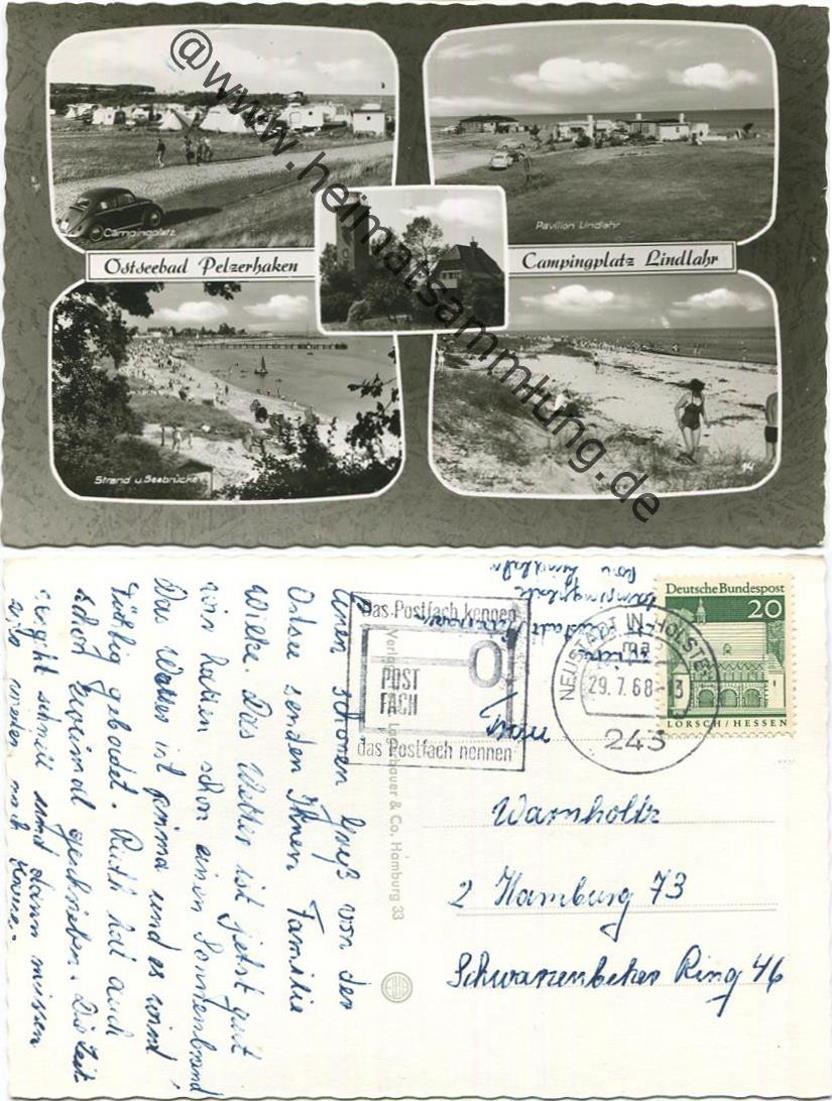 @www.heimatsammlung.de
Campingplatz
Pavillon Lindlahr
Ostseebad Pelzerhaken
Campingplatz Lindlahr
Strand u. Seebrücke
Einen schönen Gruß von der
Ostsee senden Ihnen Familie
Wilke. Das Wetter ist jetzt gut
wir hatten schon einen Sonnenbrand,
Das Wasser ist prima und es wird
tüchtig gebadet. Ruth hat auch
schon zweimal geschrieben. Die Zeit
vergeht schnell und dann müssen
wir wieder nach Hause.
Das Postfach kennen
POST
FACH
das Postfach nennen
& Co. Hamburg 33
Campingplatz
NEUSTADT IN HOLSTEIN
29.7.68-13
243
Deutsche Bundespost
20
LORSCH/HESSEN
Warnholtz
2 Hamburg 73
Schwarzenbeker Ring 46